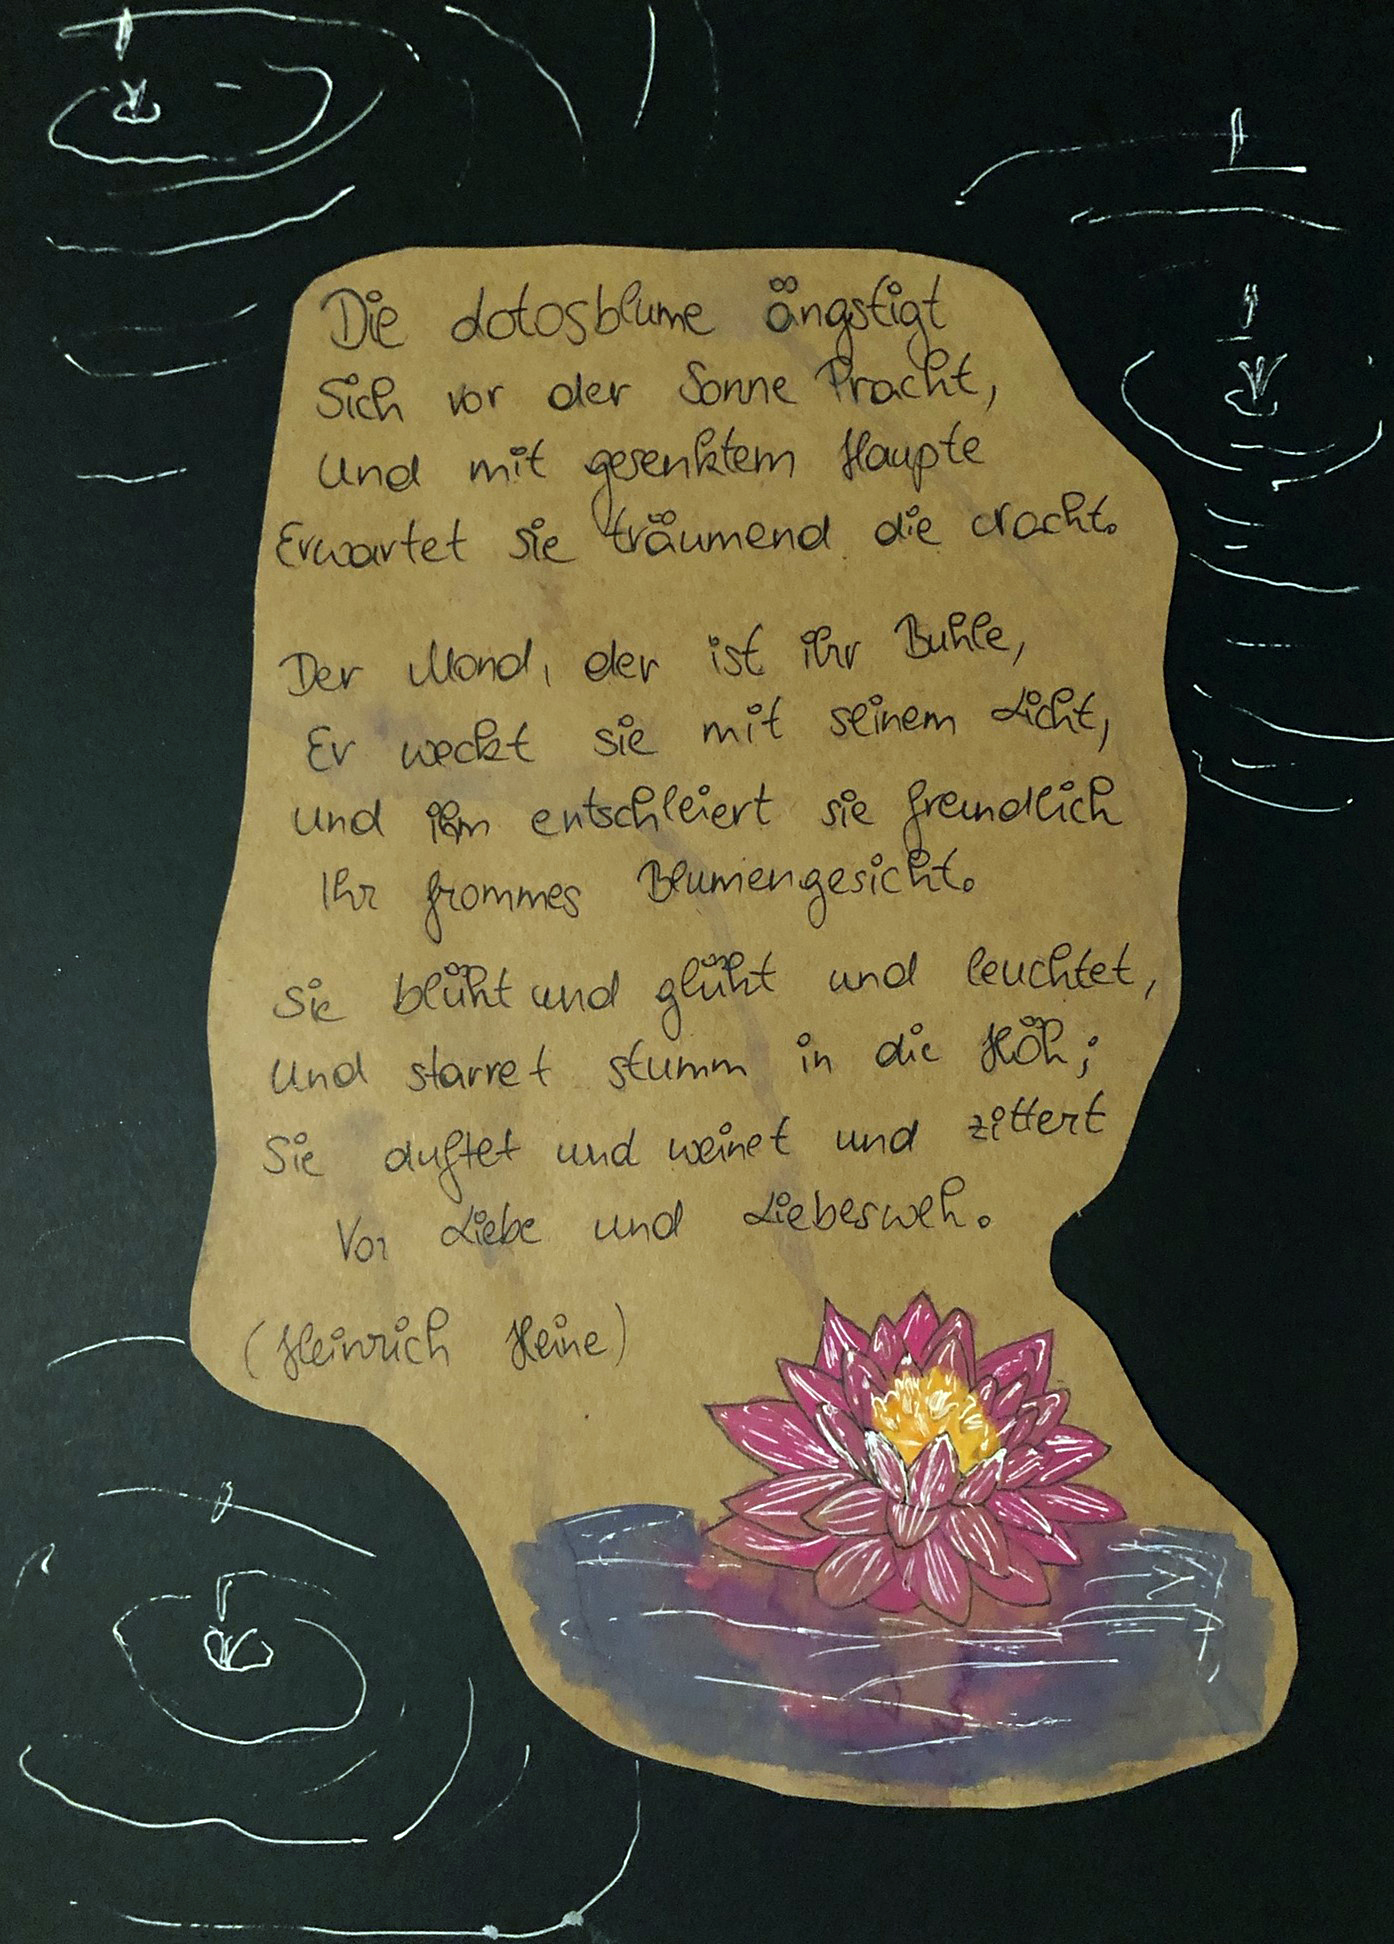 Die Lotosblume ängstigt
Sich vor der Sonne Pracht,
Und mit gesenktem Haupte
Erwartet sie träumend die Nacht.
Der Mond, der ist ihr Buhle,
Er weckt sie mit seinem Licht,
Und ihm entschleiert sie freundlich
Ihr frommes Blumengesicht.
Sie blüht und glüht und leuchtet,
Und starret stumm in die Höh;
Sie duftet und weinet und zittert
Vor Liebe und Liebesweh.
(Heinrich Heine)